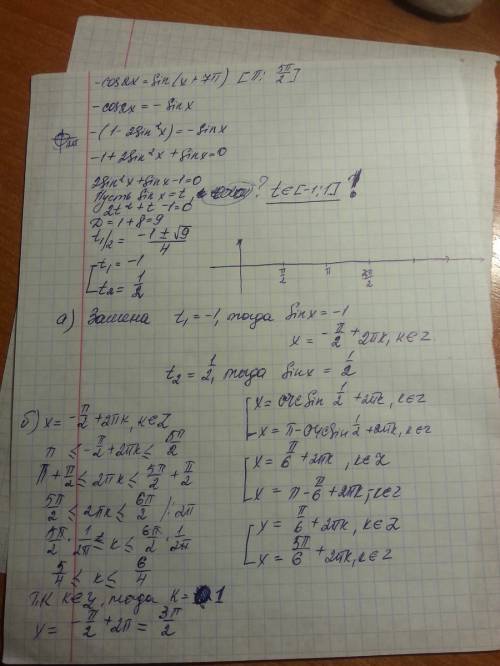 -cos2x = sin(x+7π) [π; 5π/2]
-cos2x = -sinx
-(1-2sin²x) = -sinx
-1+2sin²x+sinx=0
2sin²x+sinx-1=0
Пусть sinx=t, ? t∈[-1;1] !
2t²+t-1=0
D=1+8=9
t1/2 = (-1±√9)/4
[t₁=-1
t₂=1/2
π/2 π 3π/2
а) Замена t₁=-1, тогда sinx=-1
x=-π/2+2πk, k∈Z
t₂=1/2, тогда sinx=1/2
[x=arcsin 1/2+2πk, k∈Z
x=π-arcsin 1/2+2πk, k∈Z
[x=π/6+2πk, k∈Z
x=π-π/6+2πk, k∈Z
[x=π/6+2πk, k∈Z
x=5π/6+2πk, k∈Z
б) x=-π/2+2πk, k∈Z
π ≤ -π/2+2πk ≤ 5π/2
π+π/2 ≤ 2πk ≤ 5π/2+π/2
5π/2 ≤ 2πk ≤ 6π/2 /:2π
5π/2 · 1/2π ≤ k ≤ 6π/2 · 1/2π
5/4 ≤ k ≤ 6/4
т.к k∈Z, тогда k=1
x=-π/2+2π=3π/2